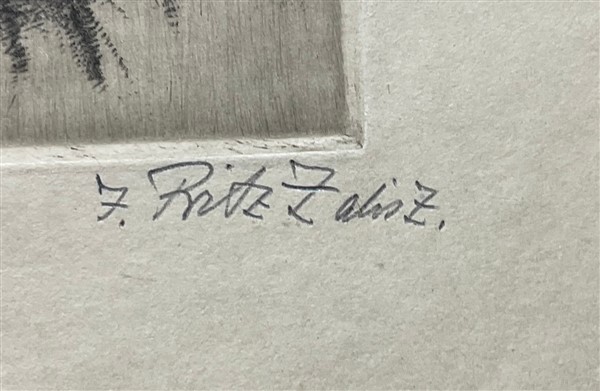 F. Fritz Zalisz.